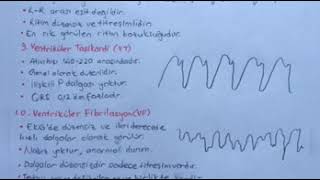 • R-R arası eşit değildir.
• Ritim düzensiz ve titreşimlidir.
• En sık görülen ritim bozukluğudur.
9. Ventriküler Taşikardi (VT)
• Atım hızı 140-220 arasındadır.
• Genel olarak düzenlidir.
• İlişkili P dalgası yoktur.
• QRS 0,12 den fazladır.
10. Ventriküler Fibrilasyon (VF)
• EKG'de düzensiz ve ileri derecede
dalgalar olarak görülür.
• Nabız yoktur, anormal durum.
• Dalgalar düzensizdir sadece titreşim vardır.